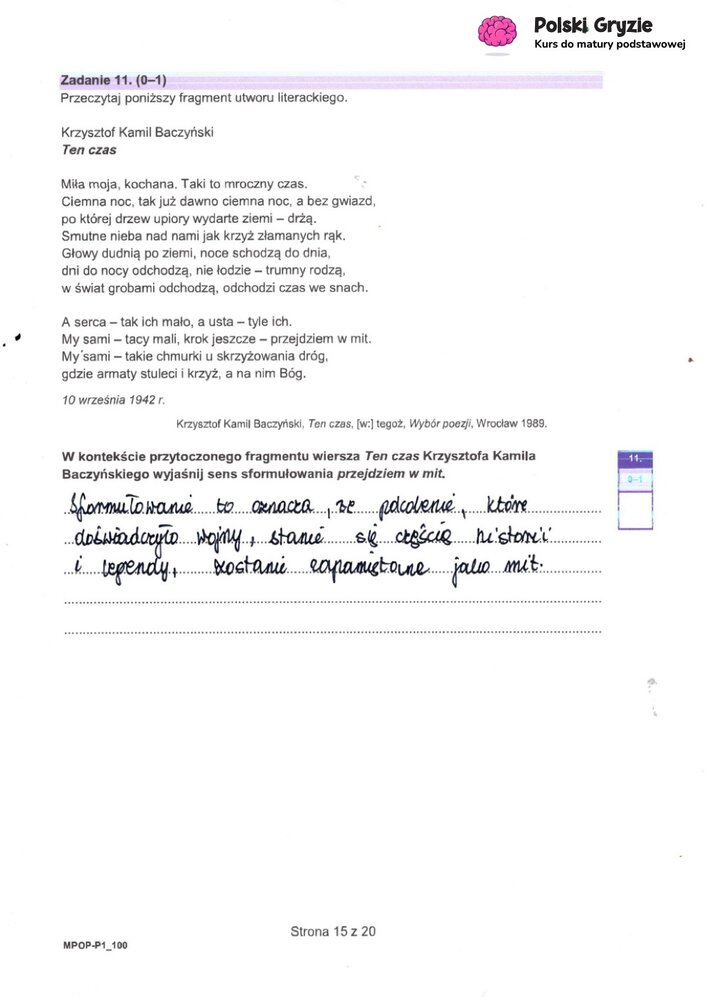 Polski Gryzie
Kurs do matury podstawowej
Zadanie 11. (0–1)
Przeczytaj poniższy fragment utworu literackiego.
Krzysztof Kamil Baczyński
Ten czas
Miła moja, kochana. Taki to mroczny czas.
Ciemna noc, tak już dawno ciemna noc, a bez gwiazd,
po której drzew upiory wydarte ziemi – drżą.
Smutne nieba nad nami jak krzyż złamanych rąk.
Głowy dudnią po ziemi, noce schodzą do dnia,
dni do nocy odchodzą, nie łodzie – trumny rodzą,
w świat grobami odchodzą, odchodzi czas we snach.
A serca – tak ich mało, a usta – tyle ich.
My sami – tacy mali, krok jeszcze – przejdziem w mit.
My sami – takie chmurki u skrzyżowania dróg,
gdzie armaty stuleci i krzyż, a na nim Bóg.
10 września 1942 r.
Krzysztof Kamil Baczyński, Ten czas, [w:] tegoż, Wybór poezji, Wrocław 1989.
W kontekście przytoczonego fragmentu wiersza Ten czas Krzysztofa Kamila
Baczyńskiego wyjaśnij sens sformułowania przejdziem w mit.
11.
0–1
Sformułowanie to oznacza, że pokolenie, które
doświadczyło wojny, stanie się częścią historii
i legendy, zostanie zapamiętane jako mit.
Strona 15 z 20
MPOP-P1_100